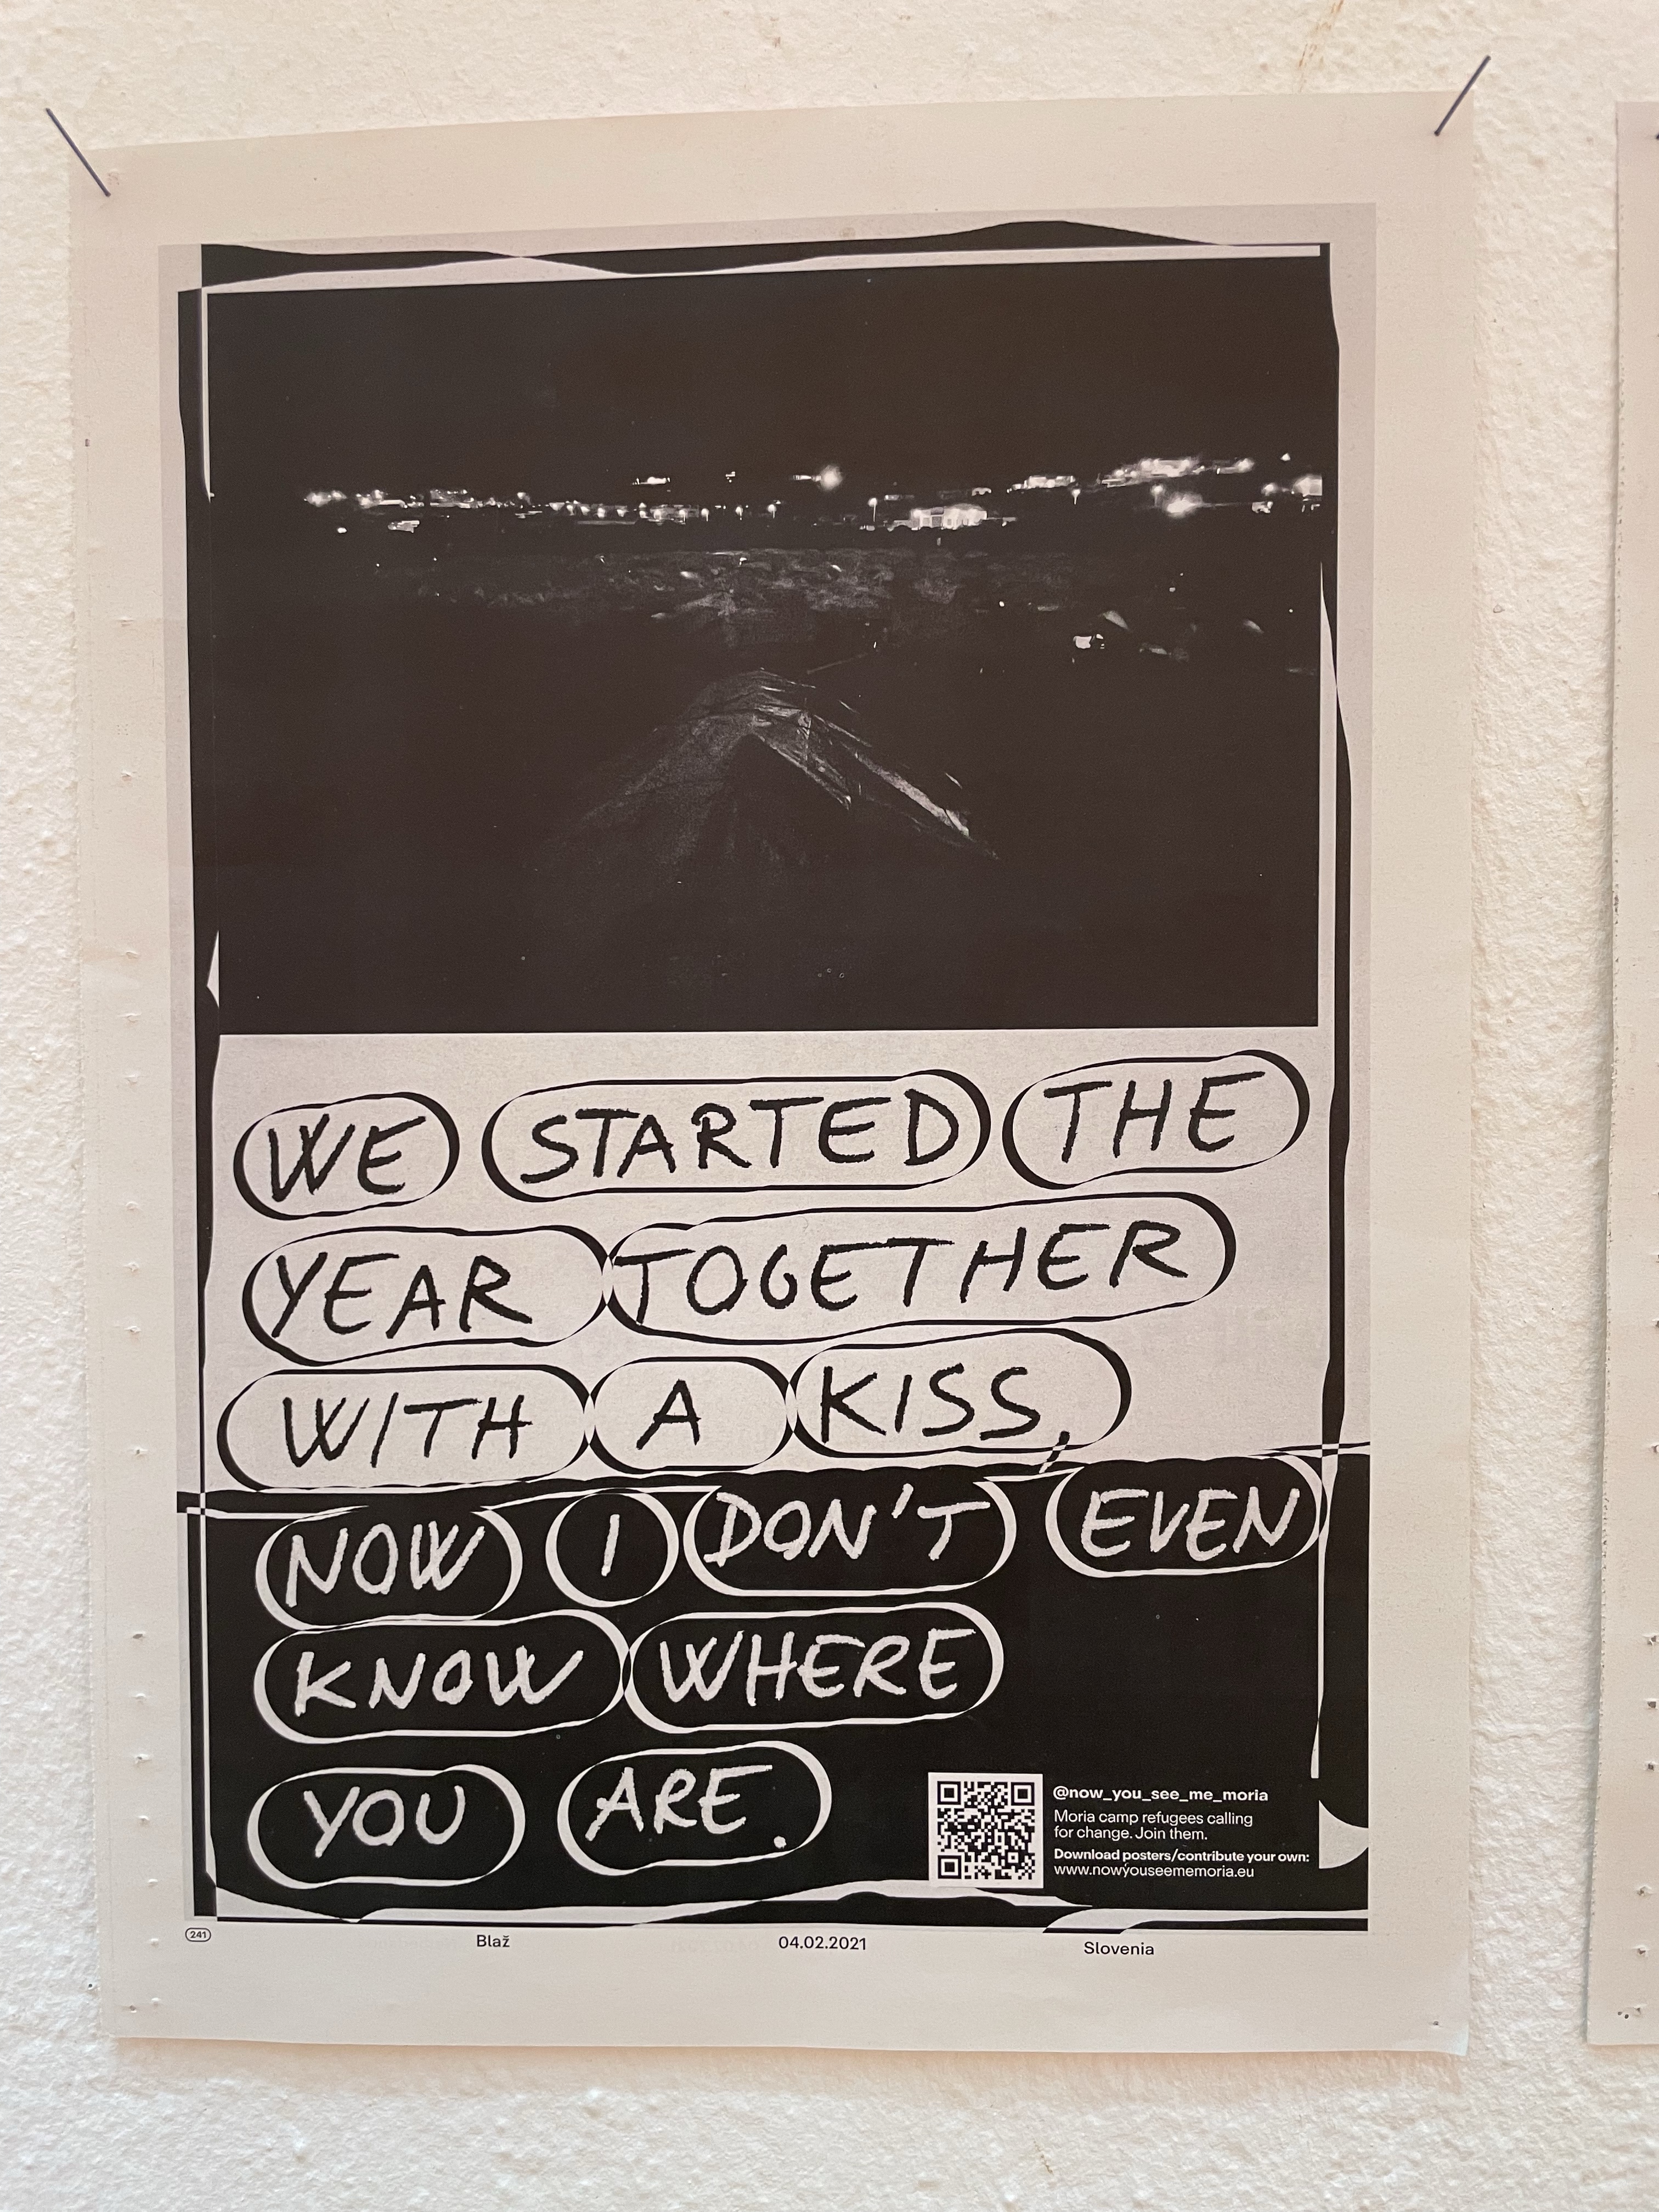 WE STARTED THE
YEAR TOGETHER
WITH A KISS,
NOW I DON'T EVEN
KNOW WHERE
YOU ARE.
@now_you_see_me_moria
Moria camp refugees calling
for change. Join them.
Download posters/contribute your own:
www.nowyouseememoria.eu
241
Blaž
04.02.2021
Slovenia